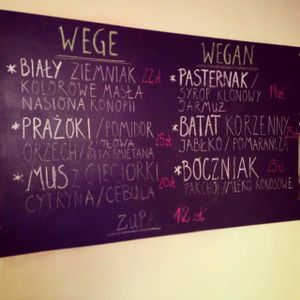 WEGE
*BIAŁY ZIEMNIAK 22zł
KOLOROWE MASŁA
NASIONA KONOPII
*PRAŻOKI/POMIDOR
ORZECH/ZIOŁOWA 25zł
BITA ŚMIETANA
*MUS Z CIECIORKI
CYTRYNA/CEBULA 20zł
WEGAN
*PASTERNAK/
SYROP KLONOWY
JARMUŻ
*BATAT KORZENNY
JABŁKO/POMARAŃCZA
*BOCZNIAK
PAKCHOI/MLEKO KOKOSOWE
ZUPA 12 zł